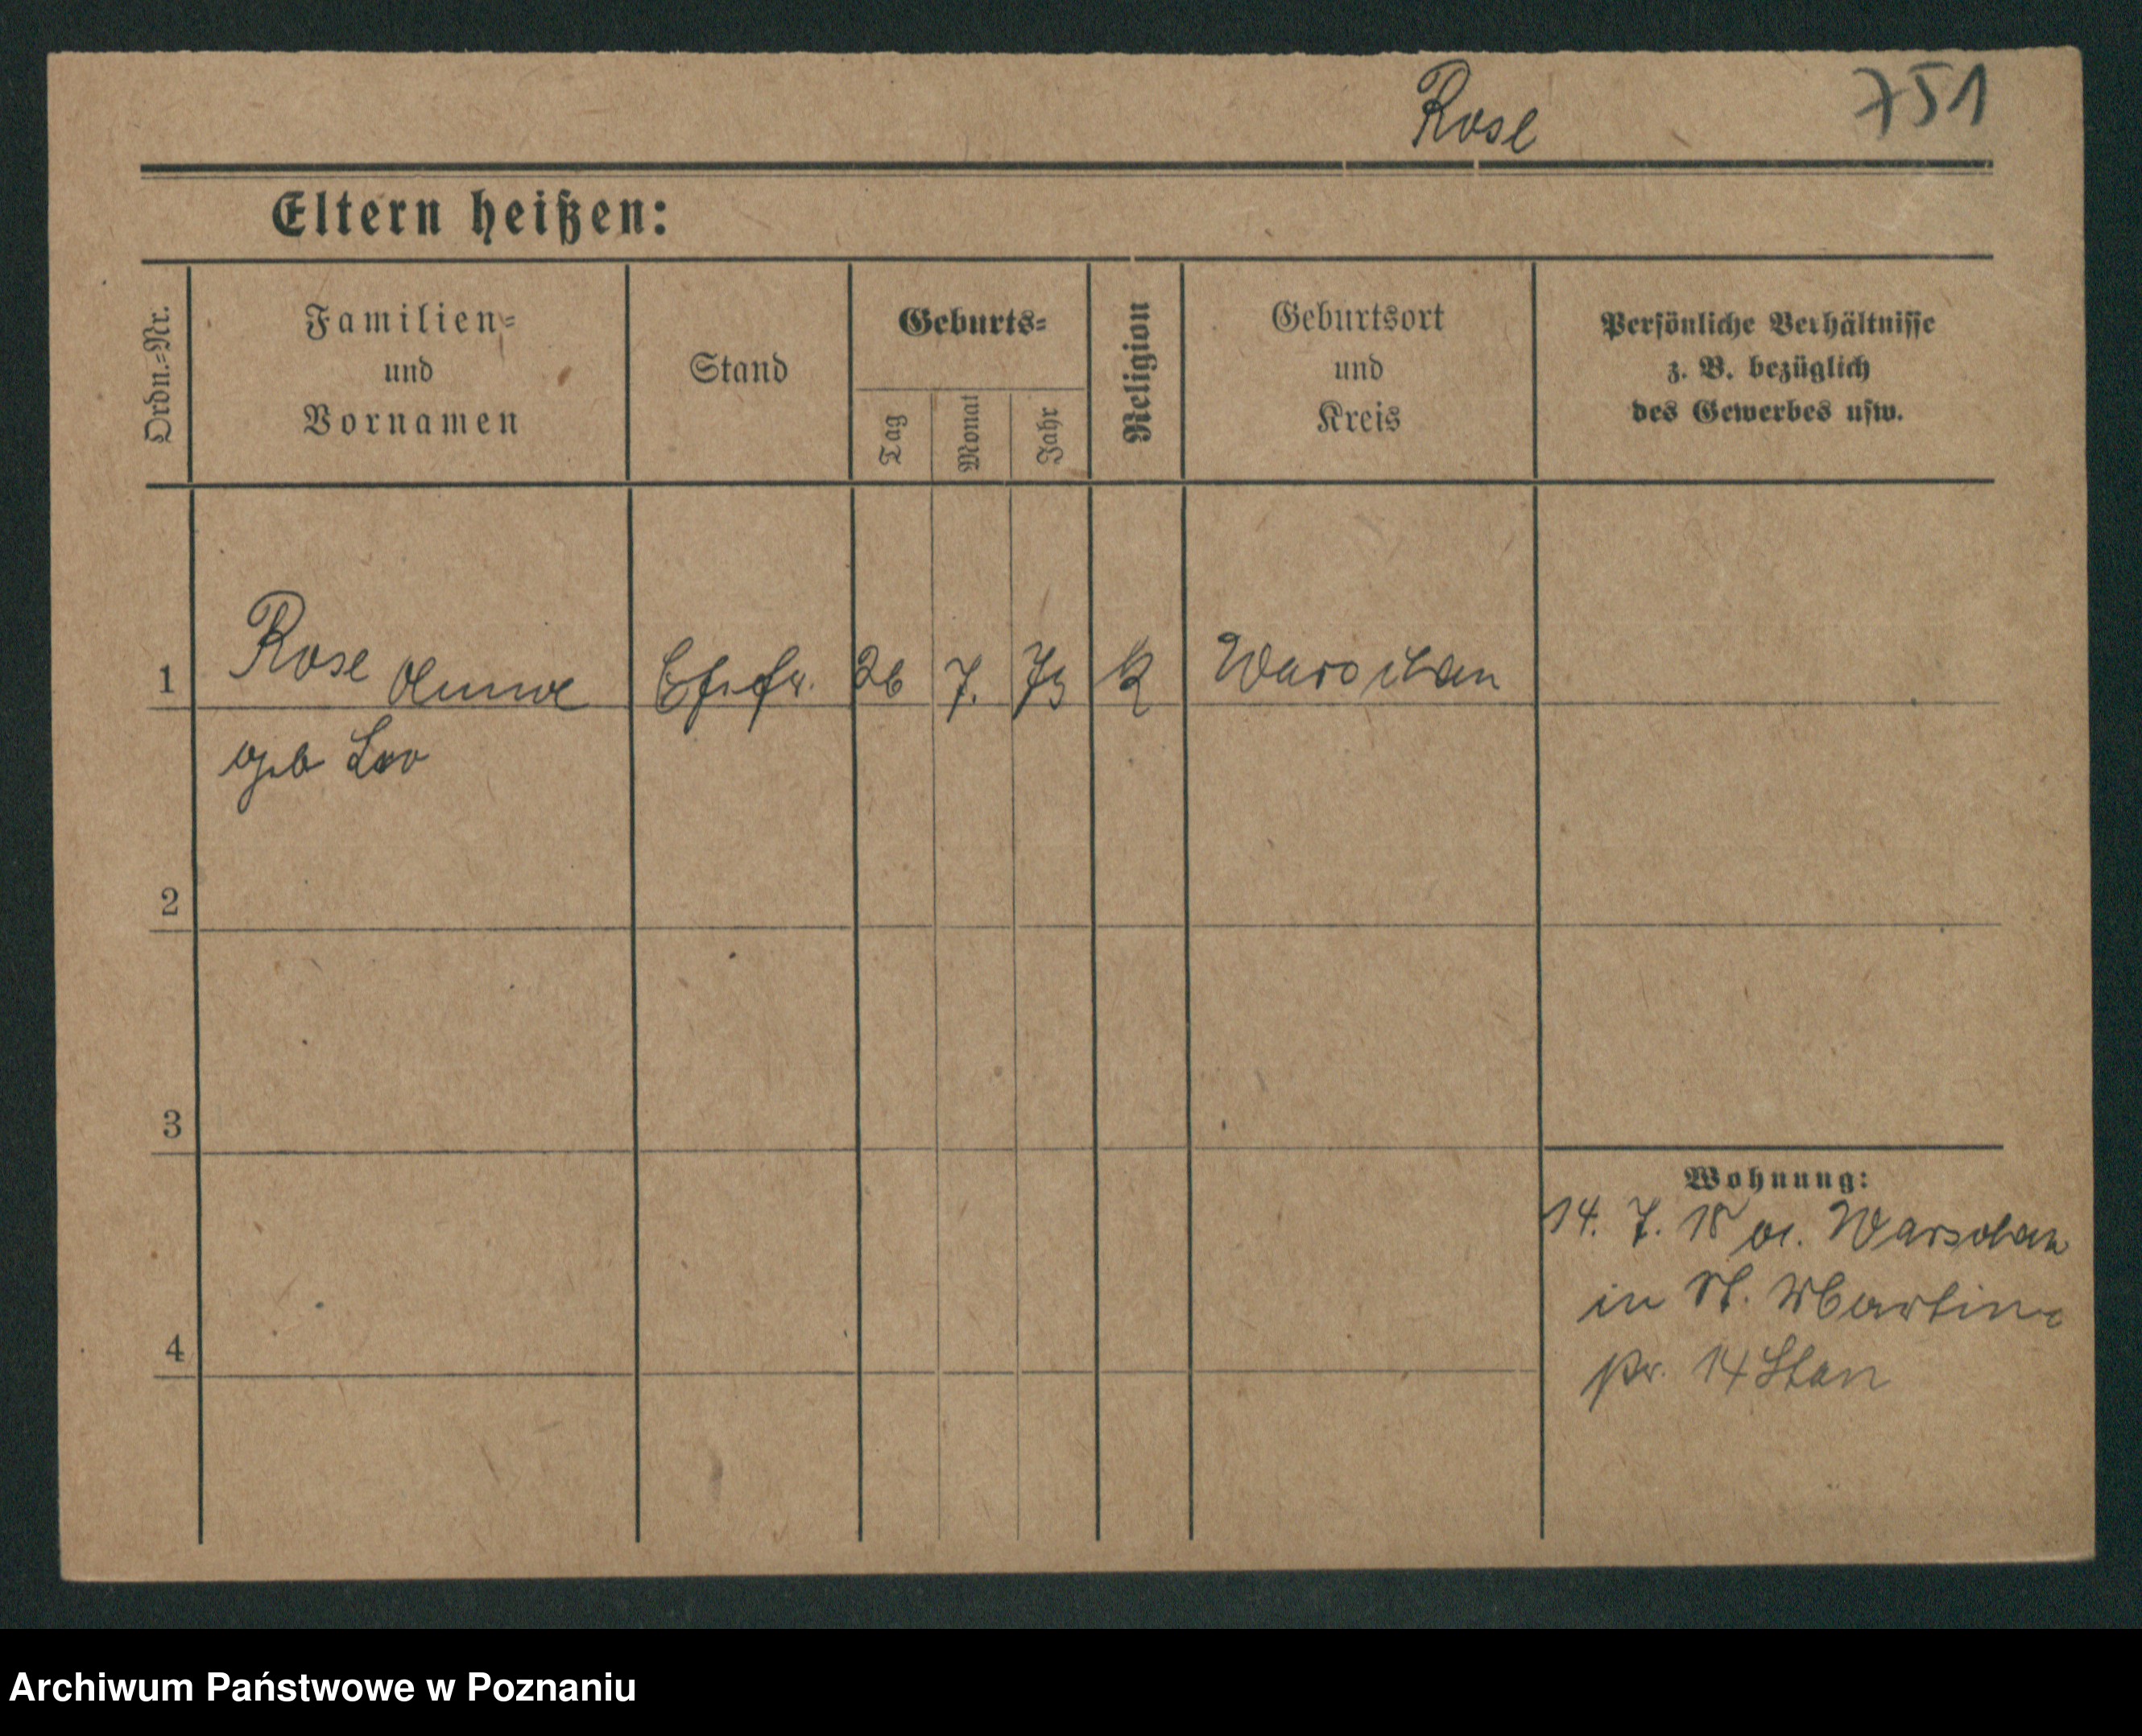 Rose 751
Eltern heißen:
Ordn.=Nr.
Familien=
und
Vornamen
Stand
Geburts=
Tag
Monat
Jahr
Religion
Geburtsort
und
Kreis
Persönliche Verhältnisse
z. B. bezüglich
des Gewerbes usw.
1 Rose 26 7. 73 K Warschau
geb
2
3
4
Wohnung:
14. 7. 18 Warschau
in St. Martin
14
Archiwum Państwowe w Poznaniu